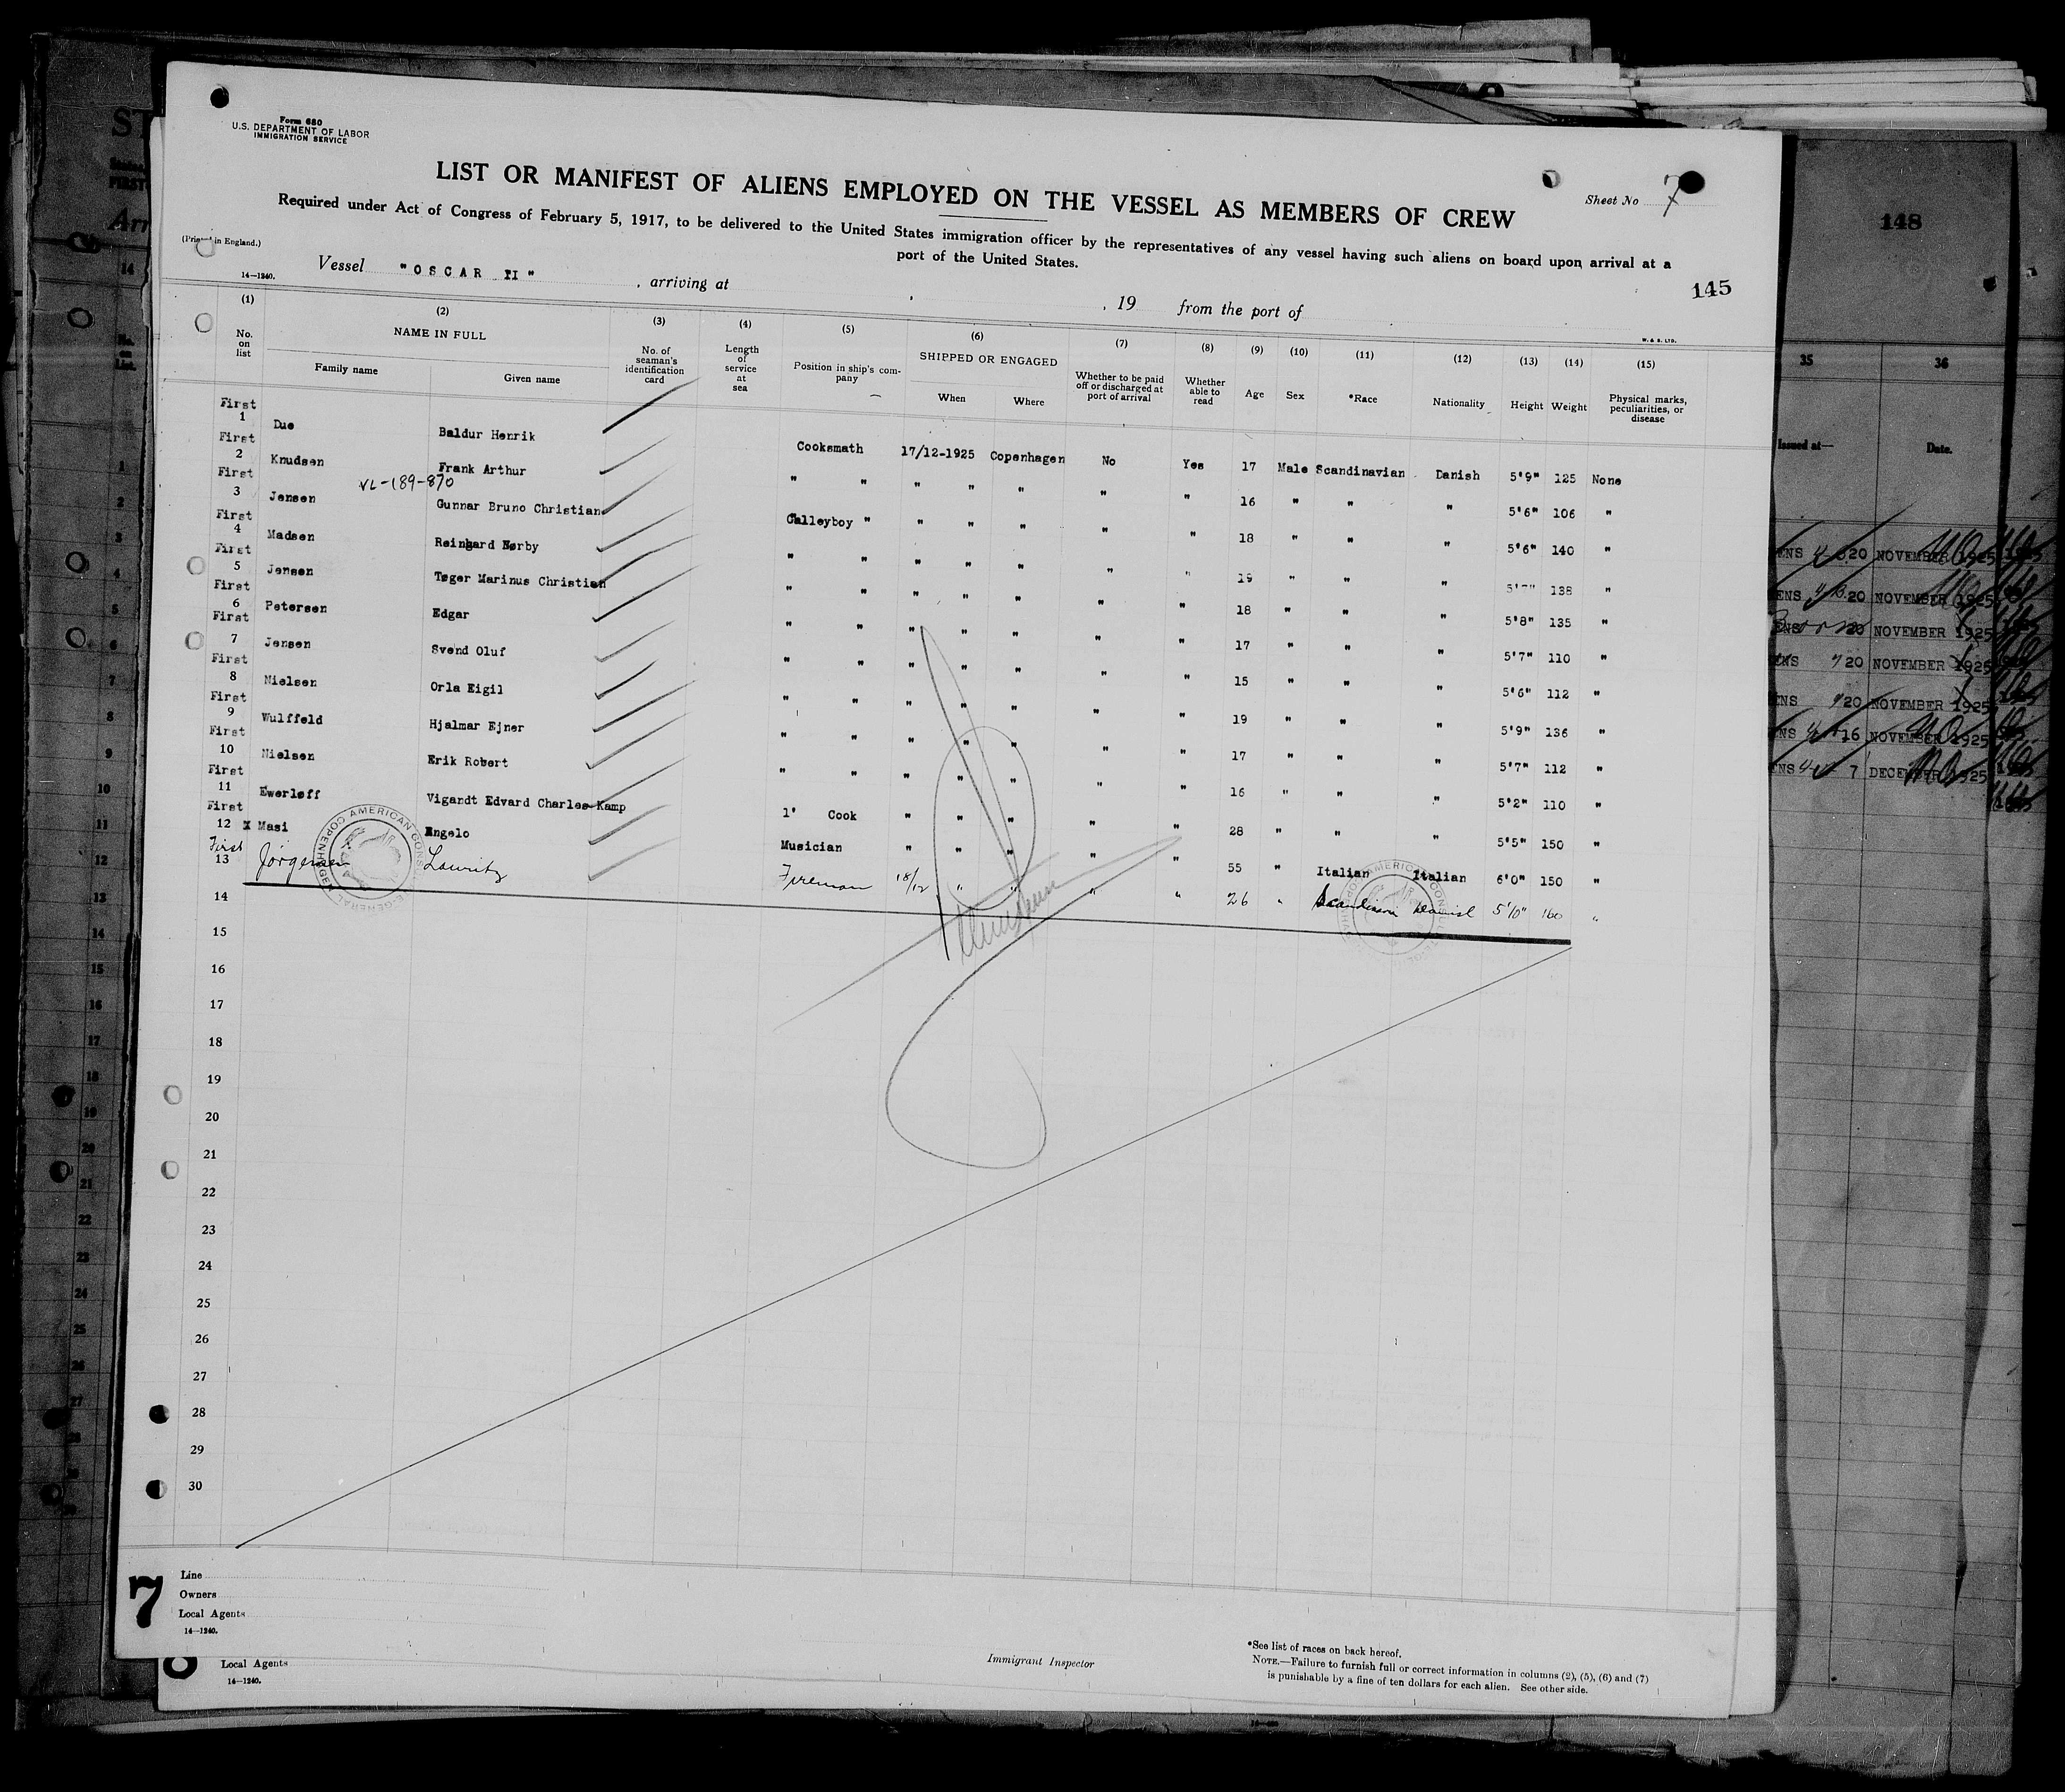 Form 680
U.S. DEPARTMENT OF LABOR
IMMIGRATION SERVICE
LIST OR MANIFEST OF ALIENS EMPLOYED ON THE VESSEL AS MEMBERS OF CREW
Sheet No 7
Required under Act of Congress of February 5, 1917, to be delivered to the United States immigration officer by the representatives of any vessel having such aliens on board upon arrival at a
port of the United States.
(Printed in England.)
14—1240.
Vessel "OSCAR II" , arriving at , 19 from the port of
145
W. & S. LTD.
(1) (2) (3) (4) (5) (6) (7) (8) (9) (10) (11) (12) (13) (14) (15)
No. on list NAME IN FULL Family name Given name No. of seaman's identification card Length of service at sea Position in ship's company SHIPPED OR ENGAGED When Where Whether to be paid off or discharged at port of arrival Whether able to read Age Sex *Race Nationality Height Weight Physical marks, peculiarities, or disease
First 1 Due Baldur Henrik Cooksmath 17/12-1925 Copenhagen No Yes 17 Male Scandinavian Danish 5'9" 125 None
First 2 Knudsen Frank Arthur " " " " " " " 16 " " " 5'6" 106 "
VL-189-870
First 3 Jensen Gunnar Bruno Christian Galleyboy " " " " " " 18 " " " 5'6" 140 "
First 4 Madsen Reinhard Nørby " " " " " " " 19 " " " 5'7" 138 "
First 5 Jensen Tøger Marinus Christian " " " " " " " 18 " " " 5'8" 135 "
First 6 Petersen Edgar " " " " " " " 17 " " " 5'7" 110 "
First 7 Jensen Svend Oluf " " " " " " " 15 " " " 5'6" 112 "
First 8 Nielsen Orla Eigil " " " " " " 19 " " " 5'9" 136 "
First 9 Wulffeld Hjalmar Ejner " " " " " " " 17 " " " 5'7" 112 "
First 10 Nielsen Erik Robert " " " " " " " 16 " " " 5'2" 110 "
First 11 Ewerløff Vigandt Edvard Charles Kamp 1' Cook " " " " " 28 " " " 5'5" 150 "
First 12 X Masi Engelo Musician " " " " " 55 " Italian Italian 6'0" 150 "
First 13 Jørgensen Lauritz Fireman 18/12 " " " " 26 " Scandinav Danish 5'10" 160 "
14
15
16
17
18
19
20
21
22
23
24
25
26
27
28
29
30
7
Line
Owners
Local Agents
14—1240.
Local Agents
14—1240.
Immigrant Inspector
*See list of races on back hereof.
NOTE.—Failure to furnish full or correct information in columns (2), (5), (6) and (7)
is punishable by a fine of ten dollars for each alien. See other side.
148
35 36
Issued at— Date.
20 NOVEMBER 1925
20 NOVEMBER 1925
20 NOVEMBER 1925
20 NOVEMBER 1925
20 NOVEMBER 1925
16 NOVEMBER 1925
7 DECEMBER 1925